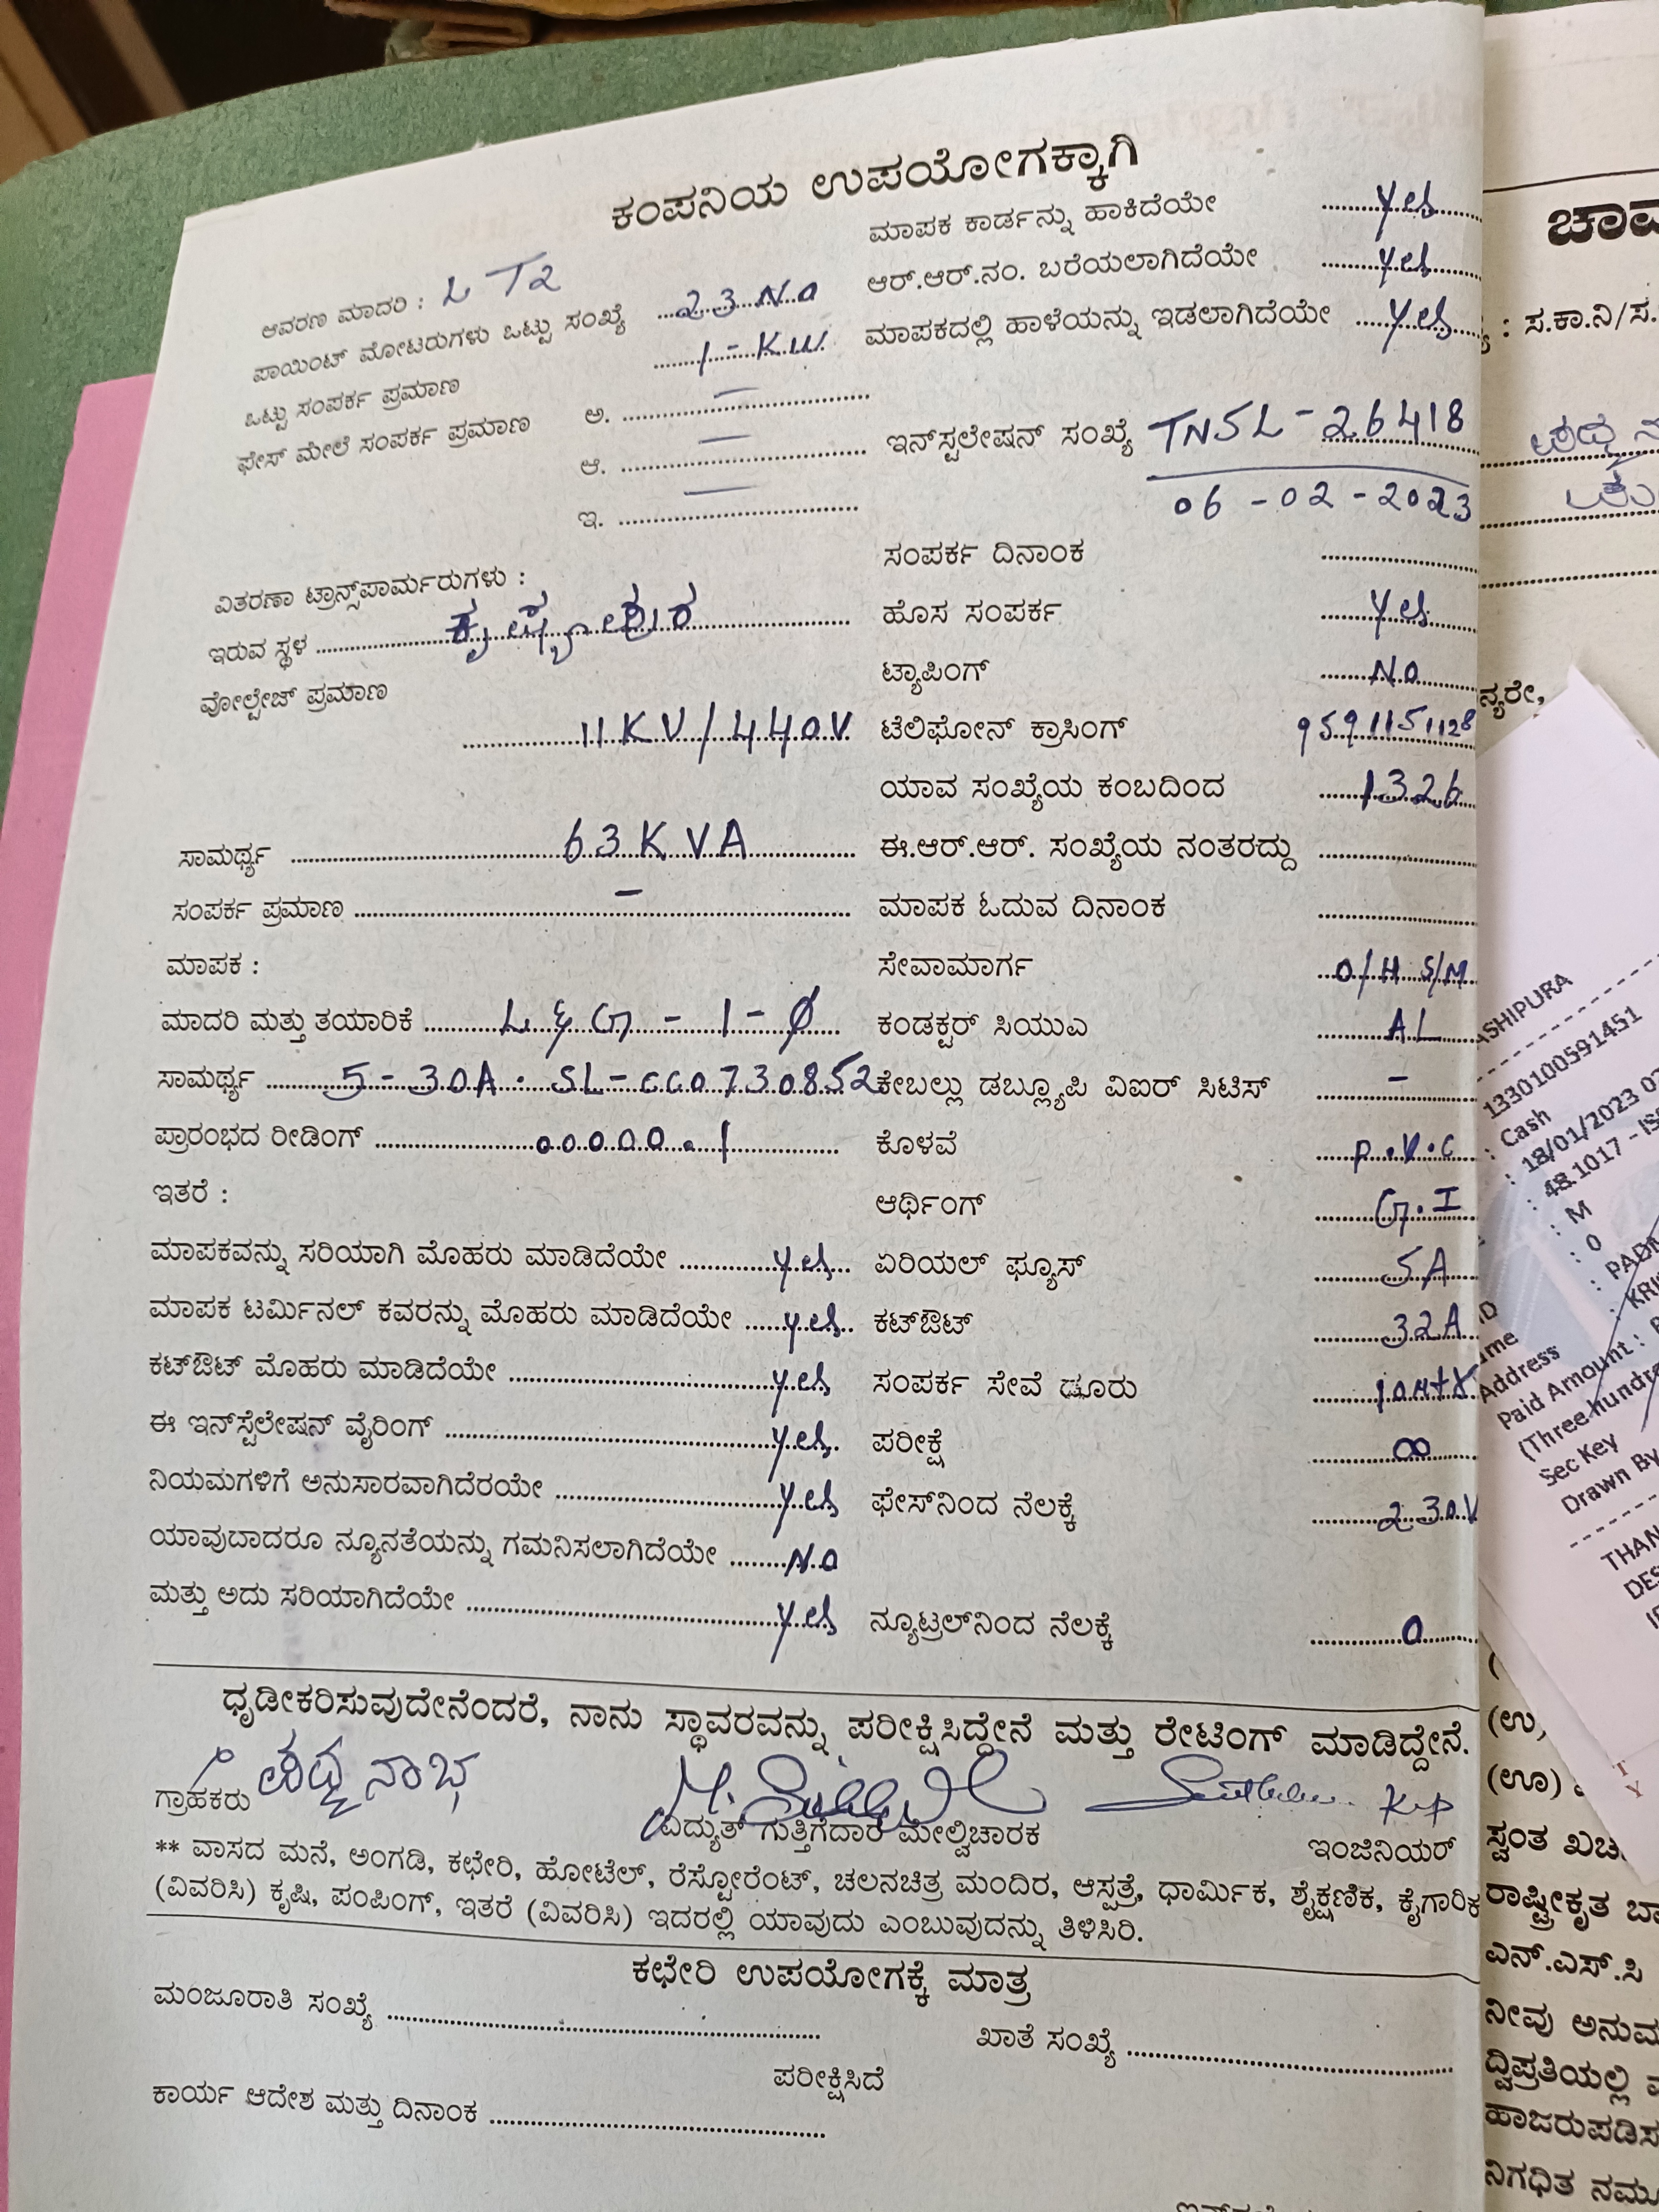 ಕಂಪನಿಯ ಉಪಯೋಗಕ್ಕಾಗಿ
ಆವರಣ ಮಾದರಿ : LT2
ಪಾಯಿಂಟ್ ಮೋಟರುಗಳು ಒಟ್ಟು ಸಂಖ್ಯೆ 23 No
ಒಟ್ಟು ಸಂಪರ್ಕ ಪ್ರಮಾಣ 1-KW
ಫೇಸ್ ಮೇಲೆ ಸಂಪರ್ಕ ಪ್ರಮಾಣ ಅ. —
ಆ. —
ಇ. —
ವಿತರಣಾ ಟ್ರಾನ್ಸ್‌ಪಾರ್ಮರುಗಳು :
ಇರುವ ಸ್ಥಳ ಕೃಷ್ಣಾಪುರ
ವೋಲ್ಟೇಜ್ ಪ್ರಮಾಣ
11KV/440V
ಸಾಮರ್ಥ್ಯ 63KVA
ಸಂಪರ್ಕ ಪ್ರಮಾಣ –
ಮಾಪಕ :
ಮಾದರಿ ಮತ್ತು ತಯಾರಿಕೆ L&G - 1 - Ø
ಸಾಮರ್ಥ್ಯ 5-30A. SL-CC0730852
ಪ್ರಾರಂಭದ ರೀಡಿಂಗ್ 00000.1
ಇತರೆ :
ಮಾಪಕವನ್ನು ಸರಿಯಾಗಿ ಮೊಹರು ಮಾಡಿದೆಯೇ yes
ಮಾಪಕ ಟರ್ಮಿನಲ್ ಕವರನ್ನು ಮೊಹರು ಮಾಡಿದೆಯೇ yes
ಕಟ್‌ಔಟ್ ಮೊಹರು ಮಾಡಿದೆಯೇ yes
ಈ ಇನ್‌ಸ್ಟೆಲೇಷನ್ ವೈರಿಂಗ್ yes
ನಿಯಮಗಳಿಗೆ ಅನುಸಾರವಾಗಿದೆರಯೇ yes
ಯಾವುಬಾದರೂ ನ್ಯೂನತೆಯನ್ನು ಗಮನಿಸಲಾಗಿದೆಯೇ No
ಮತ್ತು ಅದು ಸರಿಯಾಗಿದೆಯೇ yes
ಮಾಪಕ ಕಾರ್ಡನ್ನು ಹಾಕಿದೆಯೇ yes
ಆರ್.ಆರ್.ನಂ. ಬರೆಯಲಾಗಿದೆಯೇ yes
ಮಾಪಕದಲ್ಲಿ ಹಾಳೆಯನ್ನು ಇಡಲಾಗಿದೆಯೇ yes
ಇನ್‌ಸ್ಟಲೇಷನ್ ಸಂಖ್ಯೆ TNSL-26418
06-02-2023
ಸಂಪರ್ಕ ದಿನಾಂಕ
ಹೊಸ ಸಂಪರ್ಕ yes
ಟ್ಯಾಪಿಂಗ್ No
ಟೆಲಿಫೋನ್ ಕ್ರಾಸಿಂಗ್ 9591151128
ಯಾವ ಸಂಖ್ಯೆಯ ಕಂಬದಿಂದ 1326
ಈ.ಆರ್.ಆರ್. ಸಂಖ್ಯೆಯ ನಂತರದ್ದು
ಮಾಪಕ ಓದುವ ದಿನಾಂಕ
ಸೇವಾಮಾರ್ಗ O/H S/M
ಕಂಡಕ್ಟರ್ ಸಿಯುಎ AL
ಕೇಬಲ್ಲು ಡಬ್ಲ್ಯೂಪಿ ವಿಐರ್ ಸಿಟಿಸ್ –
ಕೊಳವೆ P.V.C
ಆರ್ಥಿಂಗ್ G.I
ಏರಿಯಲ್ ಫ್ಯೂಸ್ 5A
ಕಟ್‌ಔಟ್ 32A
ಸಂಪರ್ಕ ಸೇವೆ ಢೂರು
ಪರೀಕ್ಷೆ ∞
ಫೇಸ್‌ನಿಂದ ನೆಲಕ್ಕೆ 230V
ನ್ಯೂಟ್ರಲ್‌ನಿಂದ ನೆಲಕ್ಕೆ 0
ಧೃಡೀಕರಿಸುವುದೇನೆಂದರೆ, ನಾನು ಸ್ಥಾವರವನ್ನು ಪರೀಕ್ಷಿಸಿದ್ದೇನೆ ಮತ್ತು ರೇಟಿಂಗ್ ಮಾಡಿದ್ದೇನೆ.
ಪದ್ಮನಾಭ
ಗ್ರಾಹಕರು ವಿದ್ಯುತ್ ಗುತ್ತಿಗೆದಾರ ಮೇಲ್ವಿಚಾರಕ ಇಂಜಿನಿಯರ್
** ವಾಸದ ಮನೆ, ಅಂಗಡಿ, ಕಛೇರಿ, ಹೋಟೆಲ್, ರೆಸ್ಟೋರೆಂಟ್, ಚಲನಚಿತ್ರ ಮಂದಿರ, ಆಸ್ಪತ್ರೆ, ಧಾರ್ಮಿಕ, ಶೈಕ್ಷಣಿಕ, ಕೈಗಾರಿಕ
(ವಿವರಿಸಿ) ಕೃಷಿ, ಪಂಪಿಂಗ್, ಇತರೆ (ವಿವರಿಸಿ) ಇದರಲ್ಲಿ ಯಾವುದು ಎಂಬುವುದನ್ನು ತಿಳಿಸಿರಿ.
ಕಛೇರಿ ಉಪಯೋಗಕ್ಕೆ ಮಾತ್ರ
ಮಂಜೂರಾತಿ ಸಂಖ್ಯೆ
ಖಾತೆ ಸಂಖ್ಯೆ
ಪರೀಕ್ಷಿಸಿದೆ
ಕಾರ್ಯ ಆದೇಶ ಮತ್ತು ದಿನಾಂಕ
: ಸ.ಕಾ.ನಿ/ಸ.
1330100591451
: Cash
: 18/01/2023
: 48.1017 -
: M
: 0
Address
Paid Amount :
(Three hundre
Sec Key
Drawn By
(ಉ)
(ಊ)
ಸ್ವಂತ
ರಾಷ್ಟ್ರೀಕೃತ
ಎನ್.ಎಸ್.ಸಿ
ನೀವು
ದ್ವಿಪ್ರತಿಯಲ್ಲಿ
ನಿಗಧಿತ